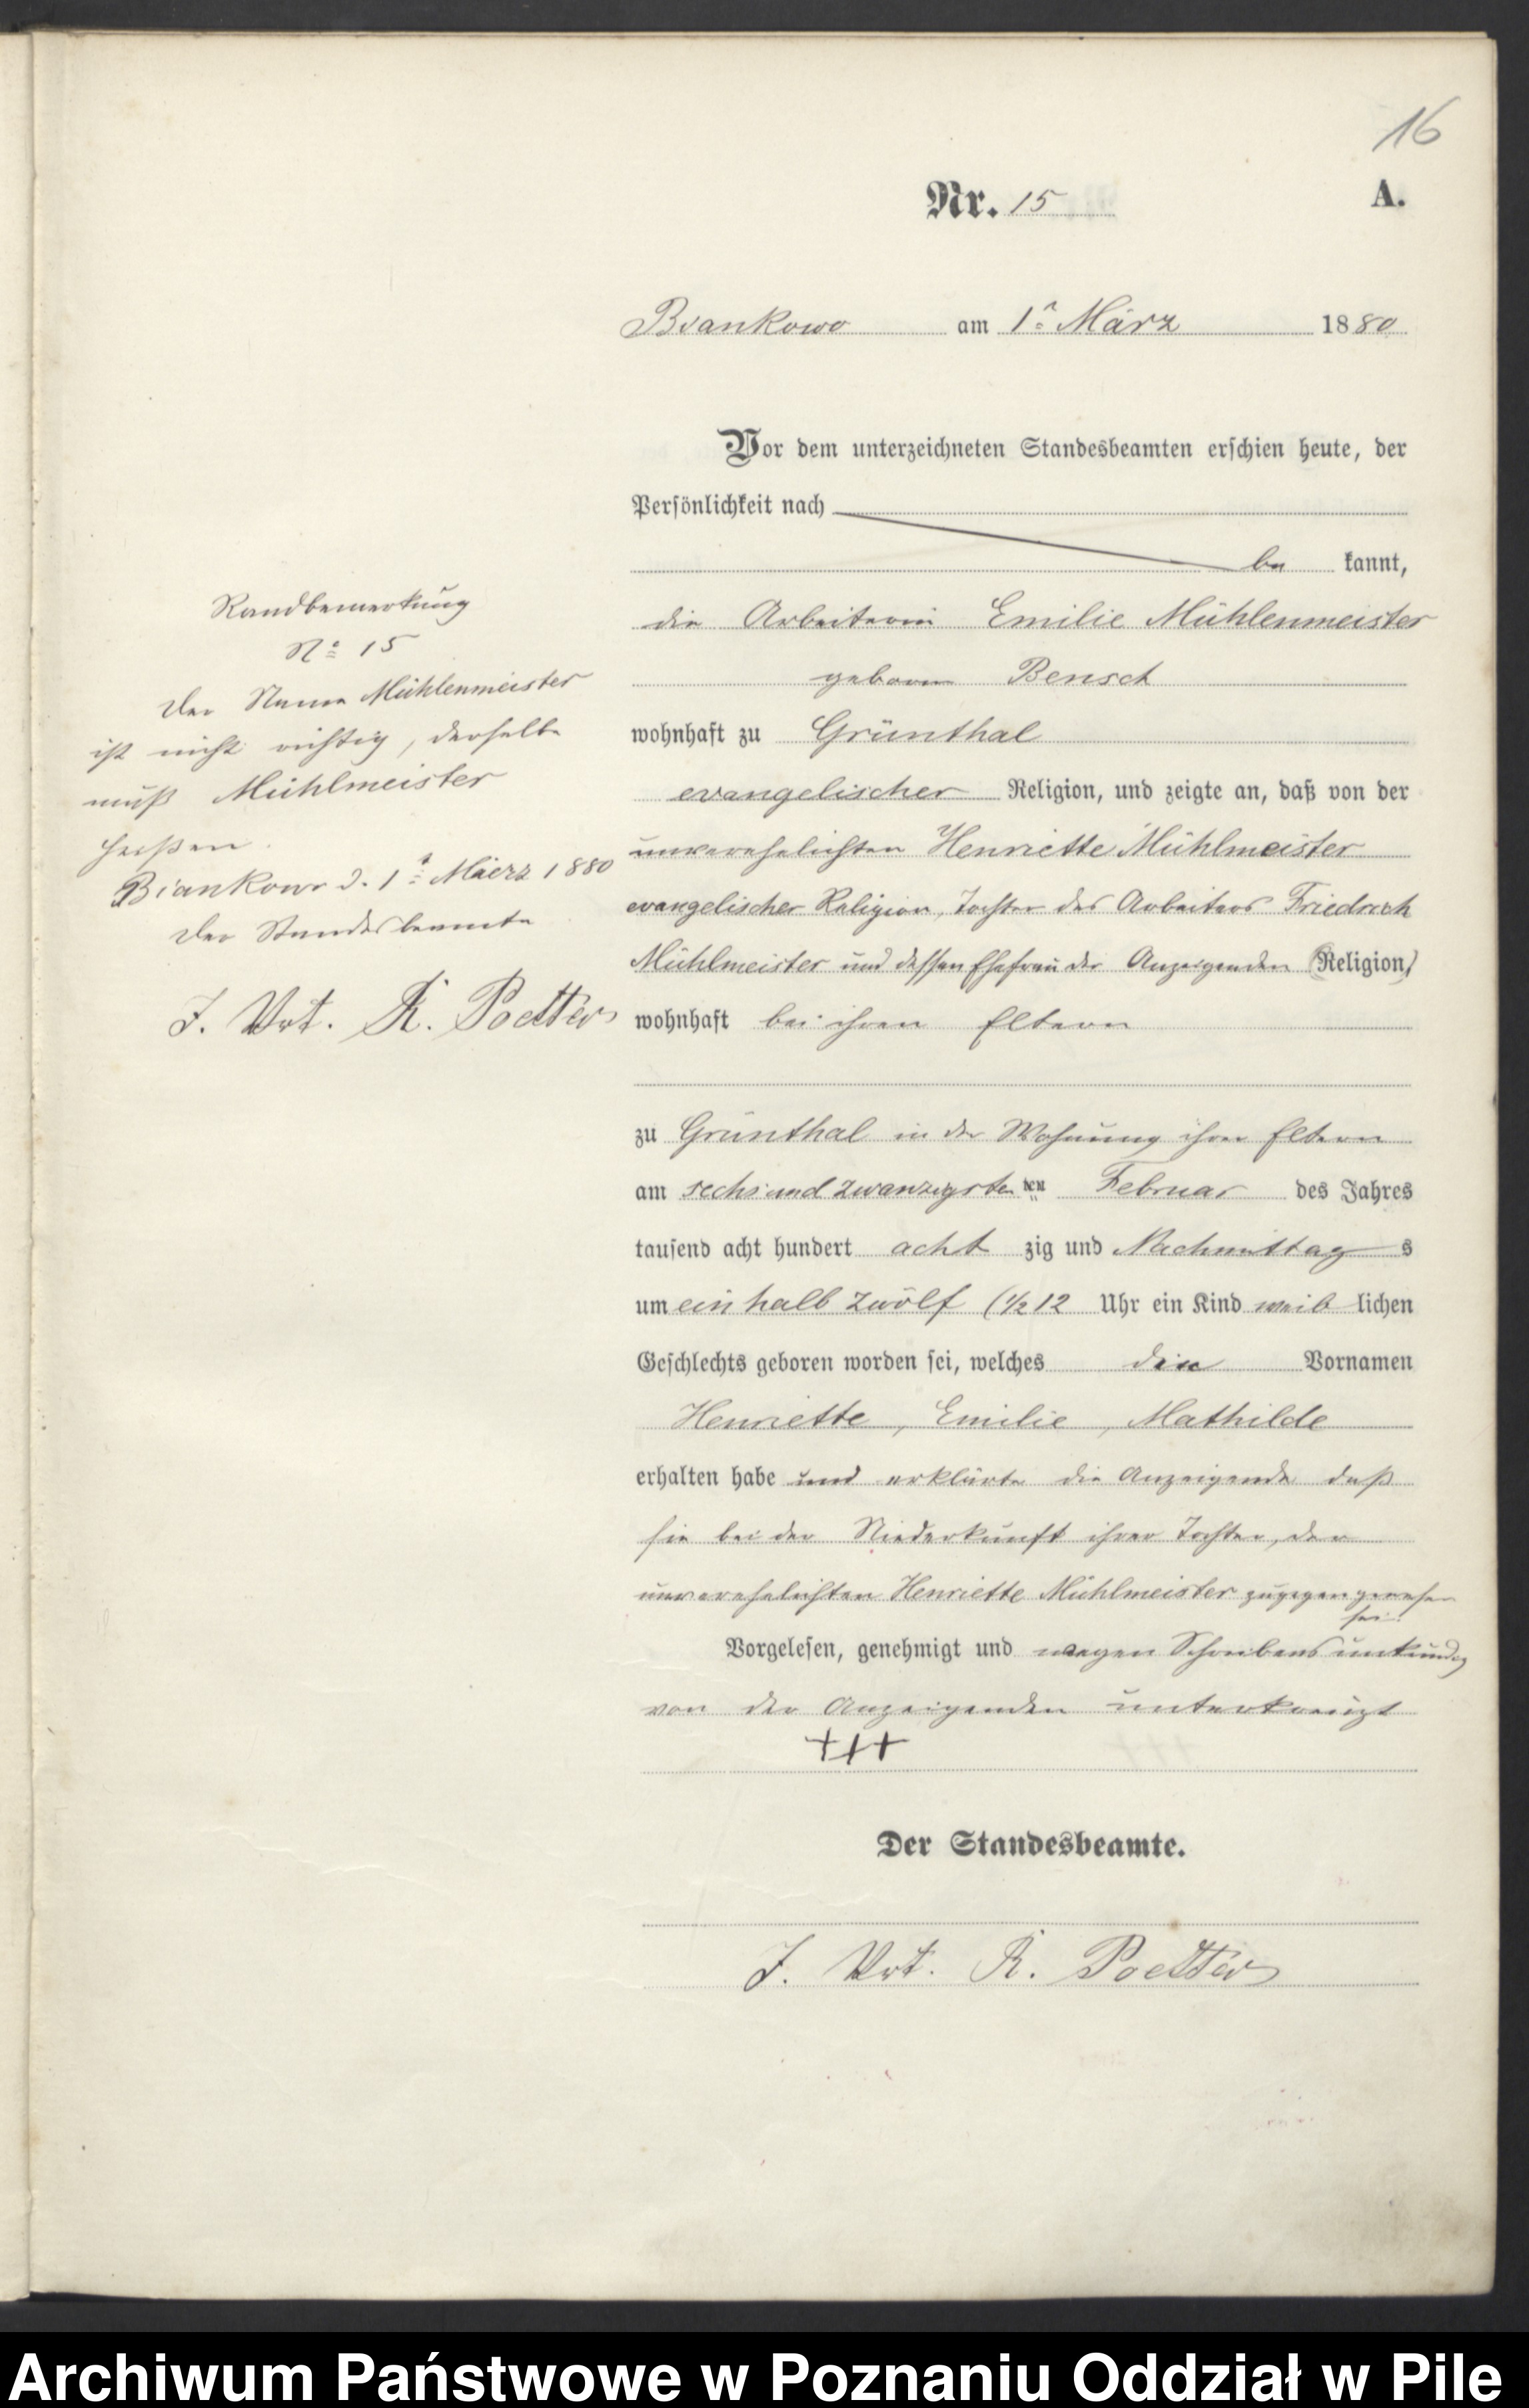 16
Nr. 15
A.
Biankowo am 1t März 1880
Vor dem unterzeichneten Standesbeamten erschien heute, der
Persönlichkeit nach
be kannt,
die Arbeiterin Emilie Mühlenmeister
geborne Bensch
wohnhaft zu Grünthal
evangelischer Religion, und zeigte an, daß von der
unverehelichten Henriette Mühlmeister
evangelischer Religion, Tochter des Arbeiters Friedrich
Mühlmeister und dessen Ehefrau der Anzeigenden (Religion)
wohnhaft bei ihren Eltern
zu Grünthal in der Wohnung ihrer Eltern
am sechs und zwanzigsten ten Februar des Jahres
tausend acht hundert acht zig und Nachmittag s
um ein halb zwölf (1/2 12 Uhr ein Kind weib lichen
Geschlechts geboren worden sei, welches die Vornamen
Henriette, Emilie, Mathilde
erhalten habe und erklärte die Anzeigende daß
sie bei der Niederkunft ihrer Tochter, der
unverehelichten Henriette Mühlmeister zugegen gewesen
sei.
Vorgelesen, genehmigt und wegen Schreibensunkundig
von der Anzeigenden unterkreuzt
+++
Der Standesbeamte.
J. Vrt. R. Poetters
Randbemerkung
No 15
Der Name Mühlenmeister
ist nicht richtig, derselbe
muß Mühlmeister
heißen.
Biankowo d. 1t März 1880
Der Standesbeamte
J. Vrt. R. Poetters
Archiwum Państwowe w Poznaniu Oddział w Pile